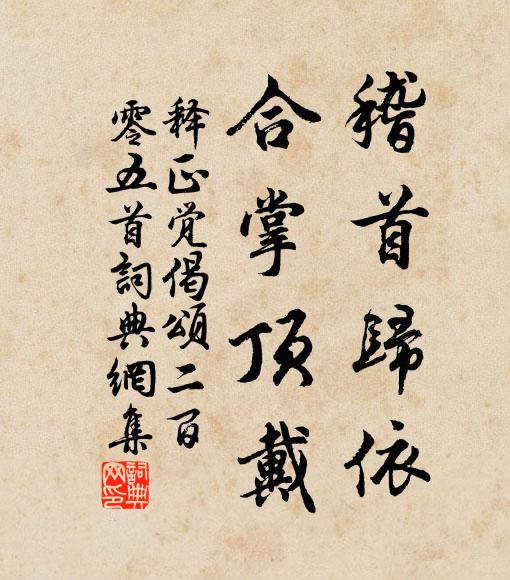 稽首歸依
合掌顶戴
释正觉偈頌二百
零五首詞典網集
詞典
网印